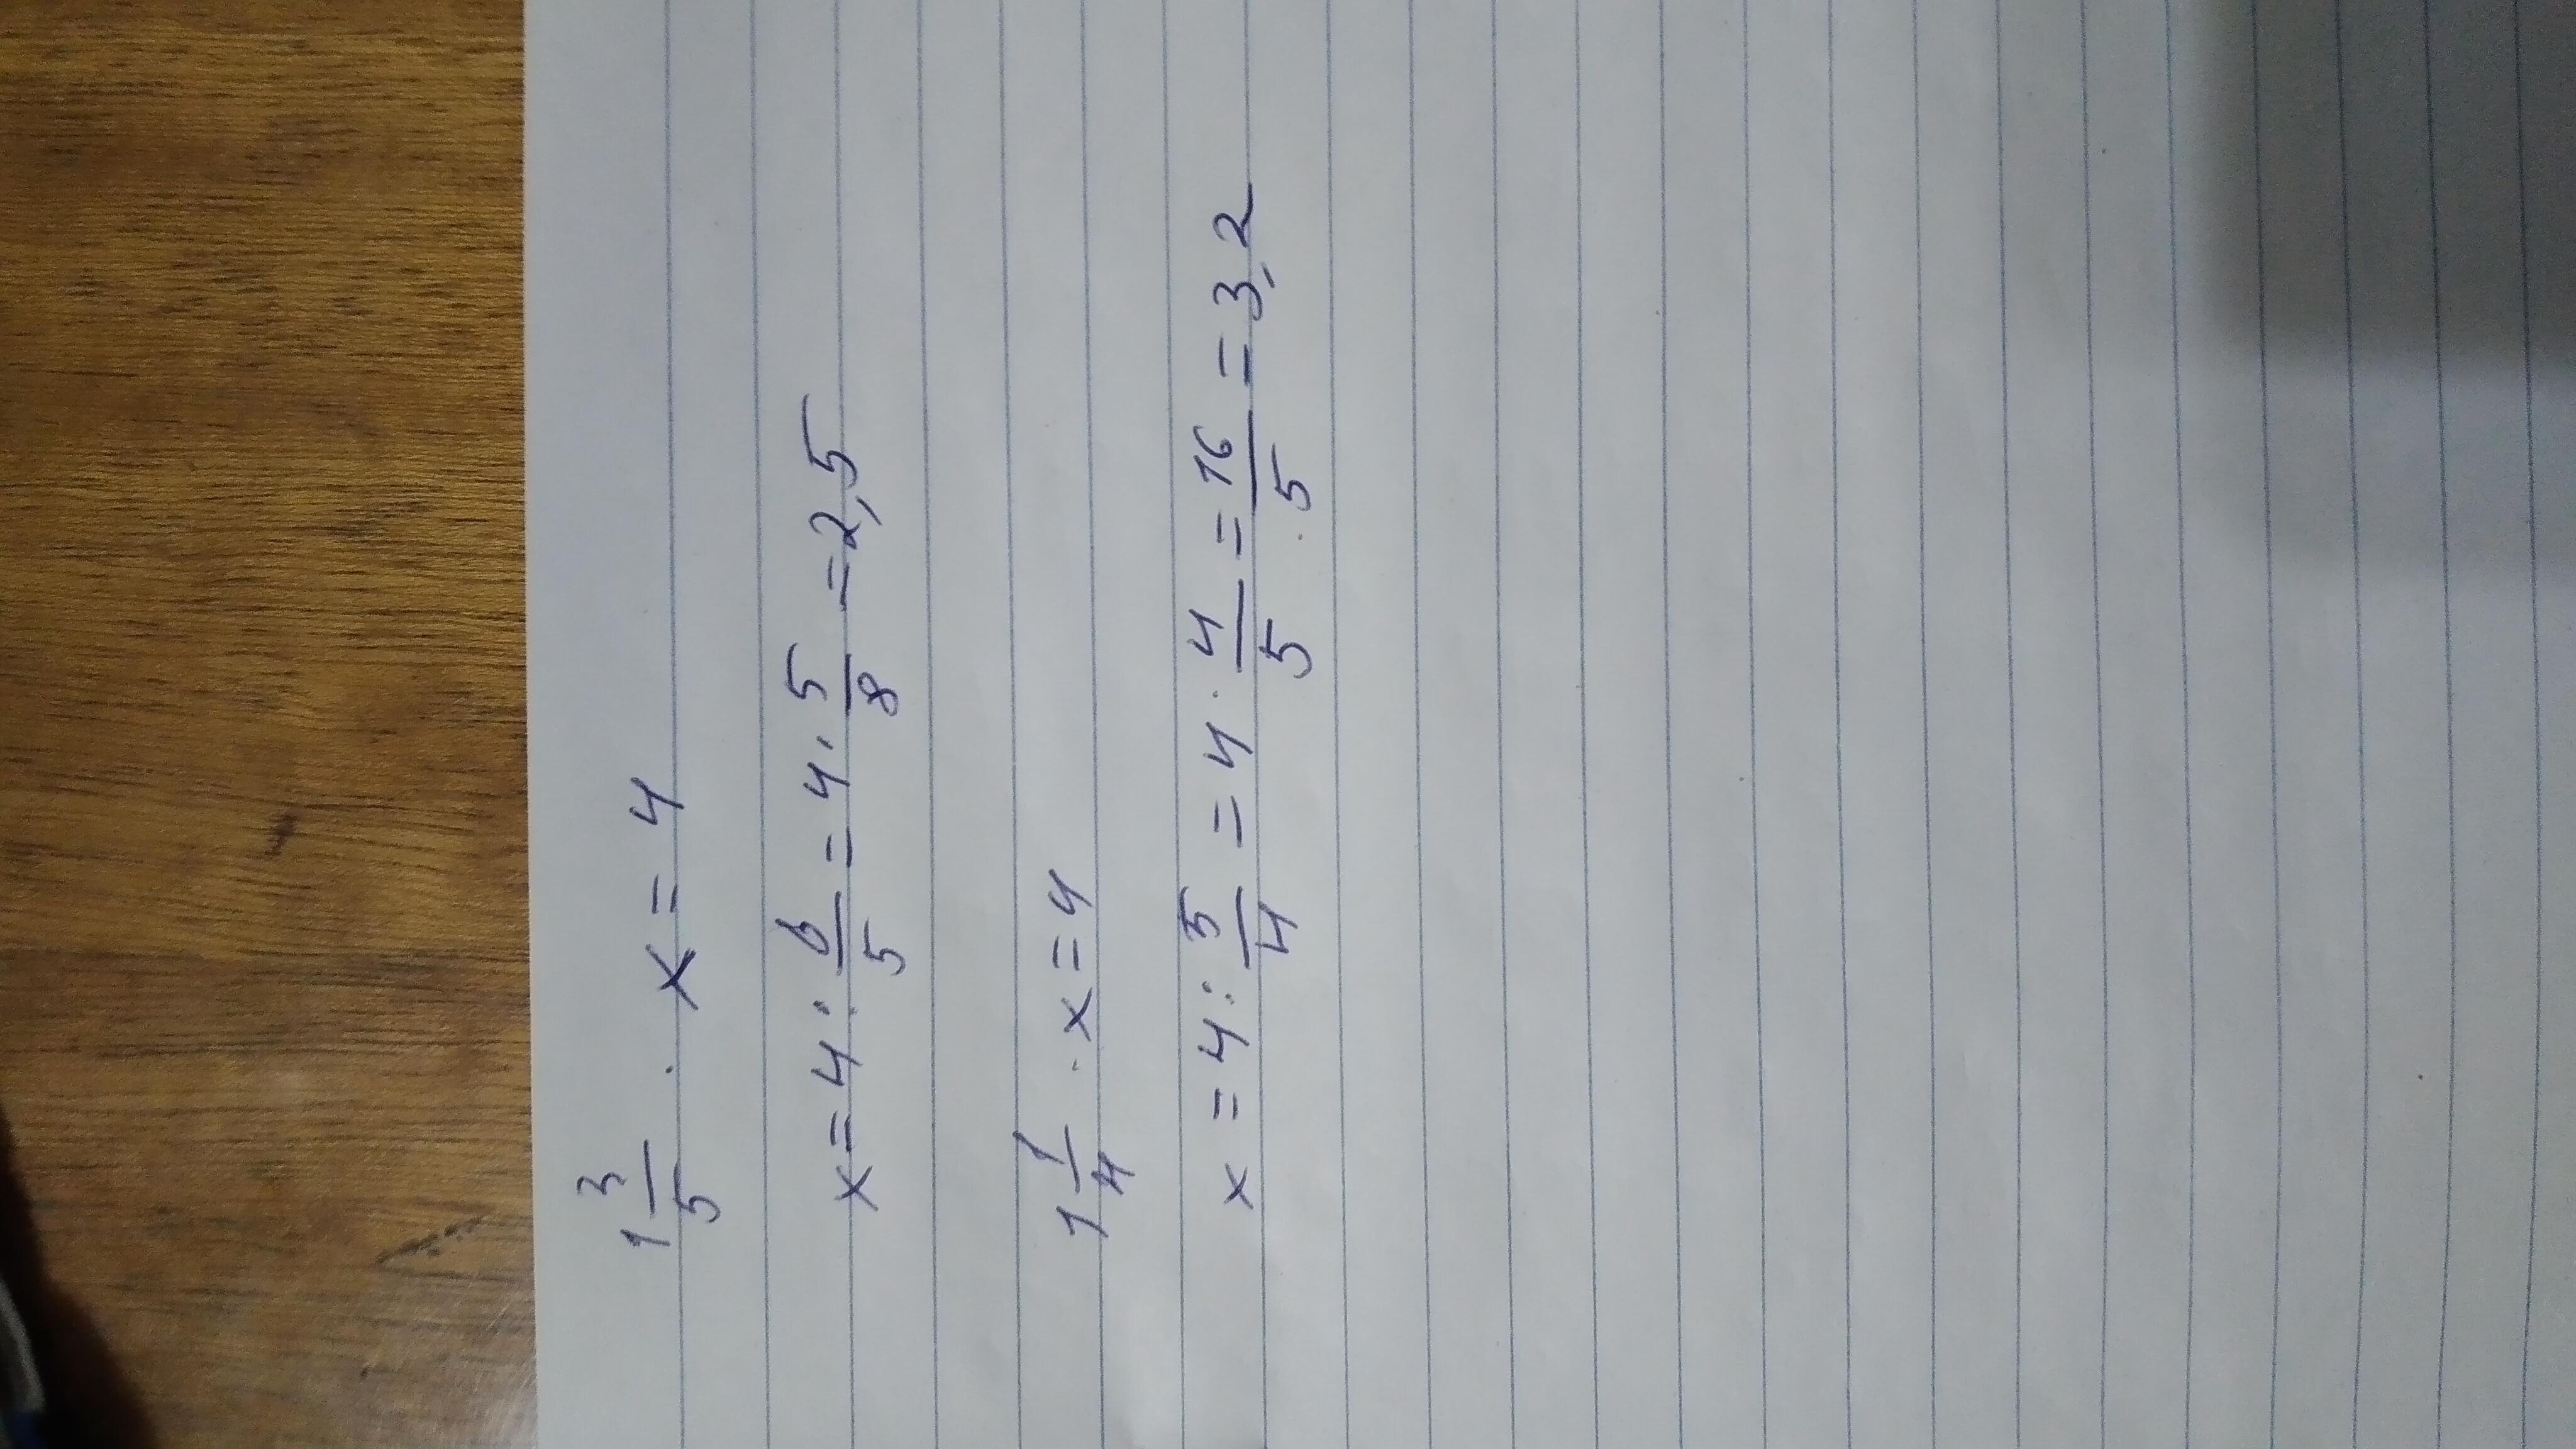 1 3/5 · x = 4
x = 4 : 8/5 = 4 · 5/8 = 2,5
1 1/4 · x = 4
x = 4 : 5/4 = 4 · 4/5 = 16/5 = 3,2